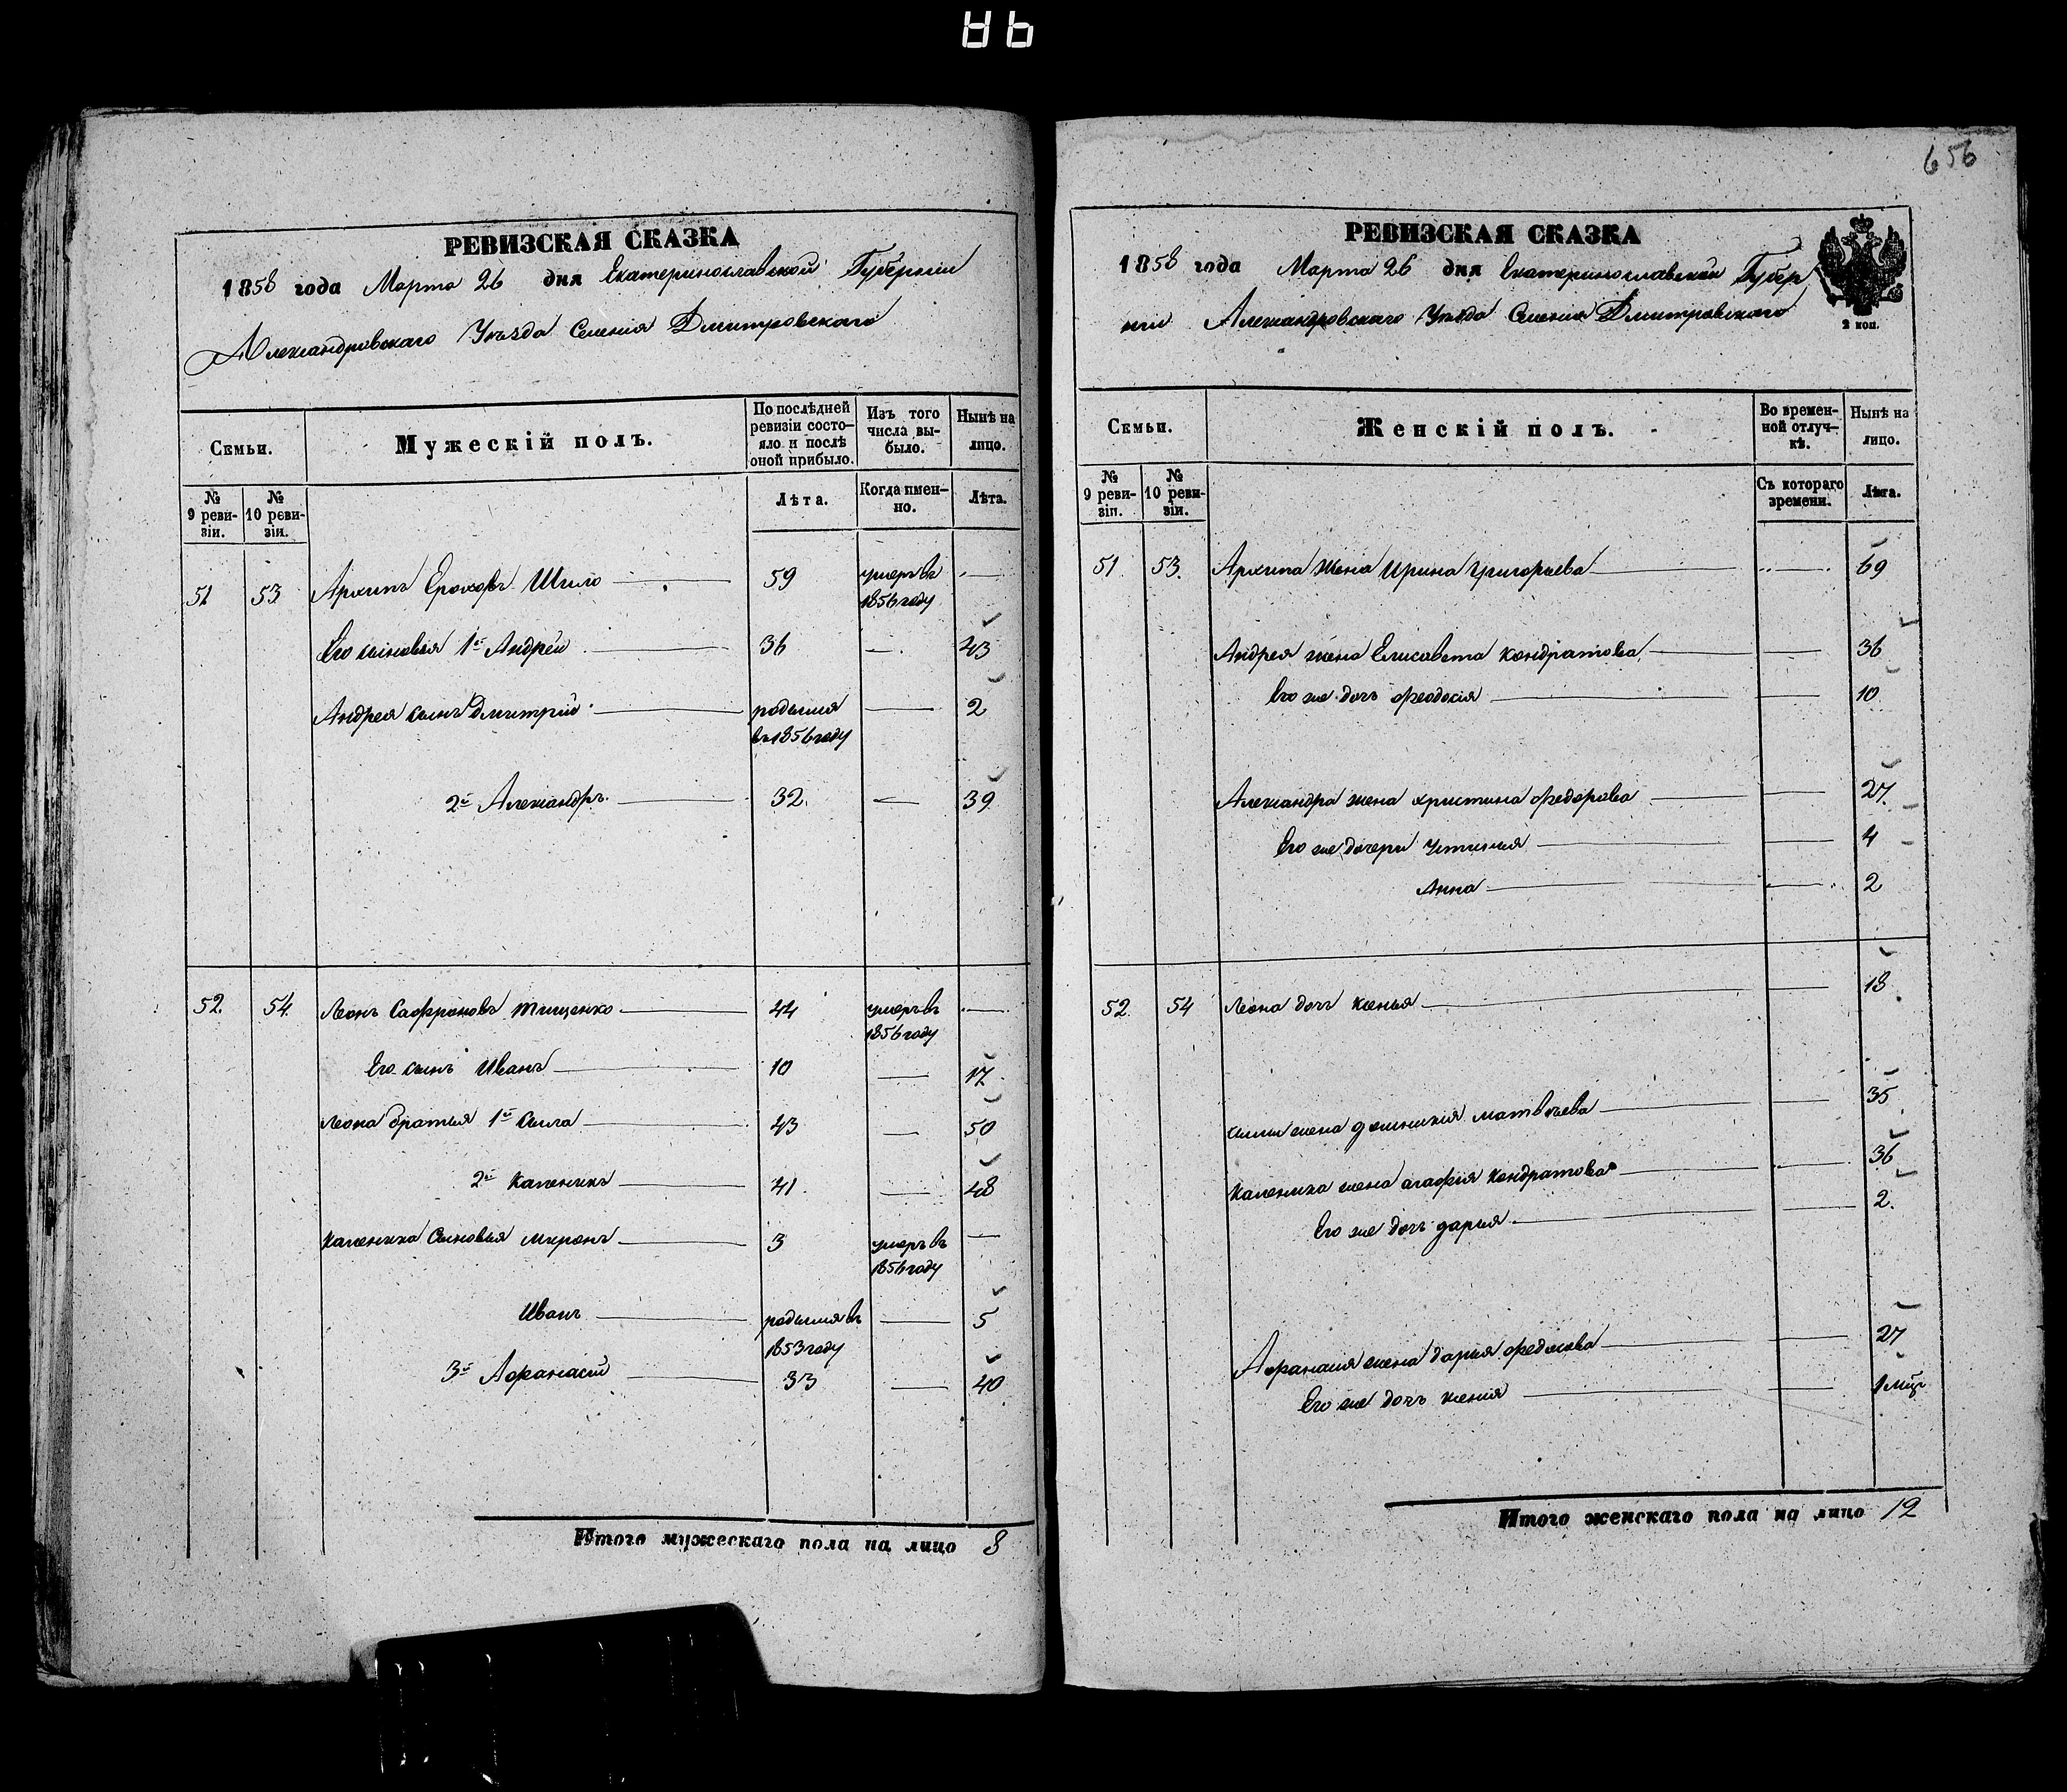 656
РЕВИЗСКАЯ СКАЗКА
1858 года Марта 26 дня Екатеринославской Губернии
Александровскаго Уѣзда Селенія Дмитровскаго
Семьи.
Мужескій полъ.
По послѣдней ревизіи состо-яло и послѣ оной прибыло.
Изъ того числа вы-было.
Нынѣ на лицо.
№ 9 реви-зіи.
№ 10 реви-зіи.
Лѣта.
Когда имен-но.
Лѣта.
51 53 Архипъ Ероховъ Шило 59 умеръ въ 1856 году —
Его сыновья 1й Андрей 36 — 43
Андрея сынъ Дмитрій родился въ 1856 году — 2
2й Александръ 32 — 39
52. 54 Леонъ Сафроновъ Тищенко 44 умеръ въ 1856 году —
Его сынъ Иванъ 10 — 17
Леона братья 1й Сила 43 — 50
2й Каленикъ 41 — 48
Каленика Сыновья Миронъ 3 умеръ въ 1856 году —
Иванъ родился въ 1853 году — 5
3й Афанасій 33 — 40
Итого мужескаго пола на лицо 8
РЕВИЗСКАЯ СКАЗКА
1858 года Марта 26 дня Екатеринославской Губер
ніи Александровскаго Уѣзда Селенія Дмитровскаго
2 коп.
Семьи.
Женскій полъ.
Во времен-ной отлуч-кѣ.
Нынѣ на лицо.
№ 9 реви-зіи.
№ 10 реви-зіи.
Съ котораго времени.
Лѣта.
51 53. Архипа Жена Ирина Григорьева — 69
Андрея жена Елисавета Кондратова — 36
Его же дочь Феодосія — 10
Александра жена Христина Федорова — 27
Его же дочери Устинія — 4
Анна — 2
52. 54 Леона дочь Ксенья — 18
Силы жена Матвѣева — 35
Каленика жена Агафія Кондратова — 36
Его же дочь Дарья — 2.
Афанасія жена Дарья — 27
Его же дочь Ксенія — 1 мѣц
Итого женскаго пола на лицо 12